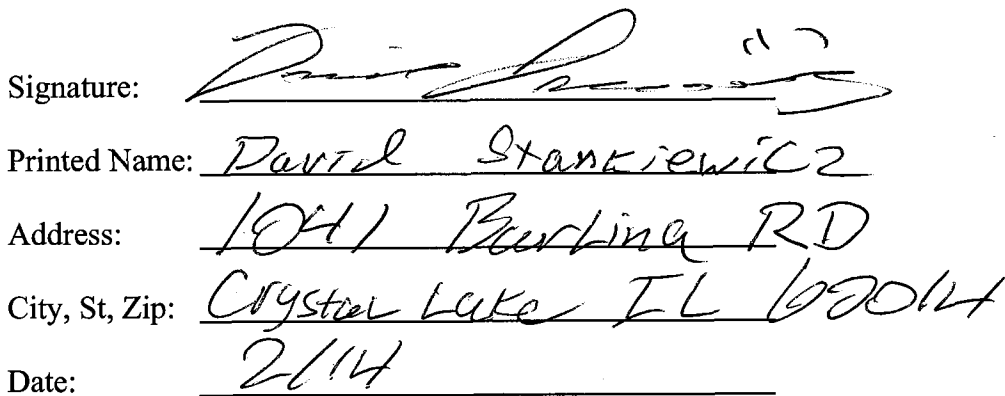 Signature:
Printed Name: David Stankiewicz
Address: 1041 Barlina RD
City, St, Zip: Crystal Lake IL 60014
Date: 2/14